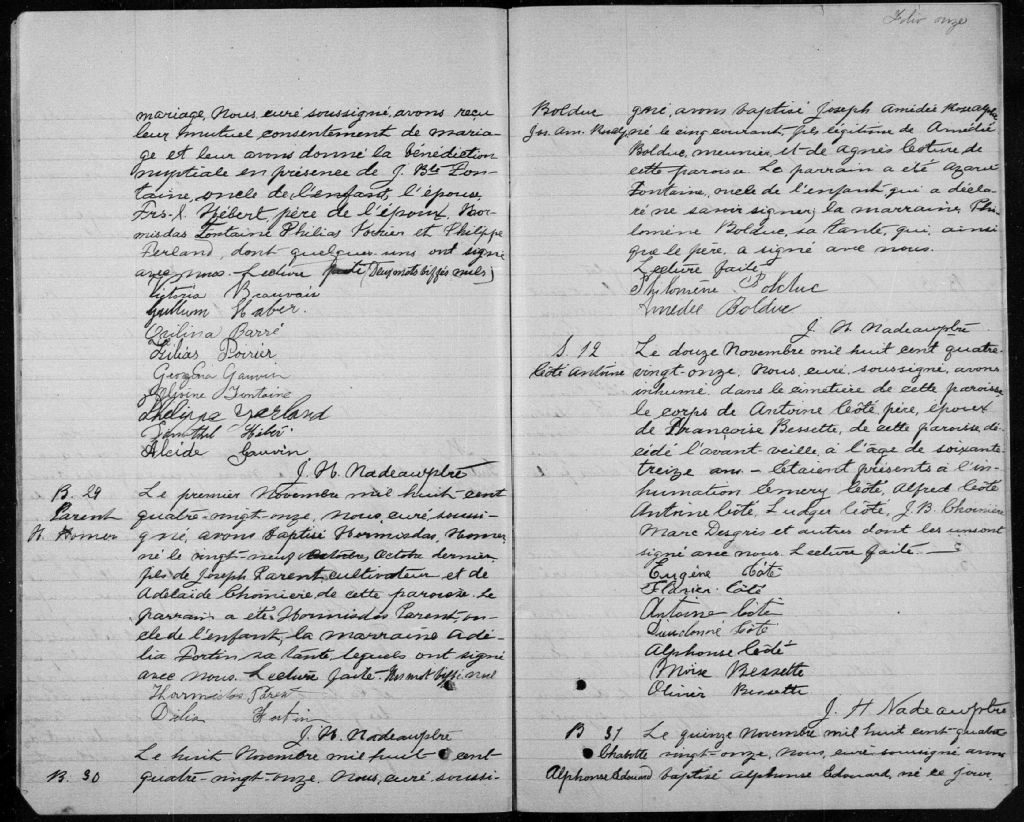 mariage, Nous, curé soussigné, avons reçu
leur mutuel consentement de maria-
ge et leur avons donné la bénédiction
nuptiale en présence de J. Bte Fon-
taine, oncle de l'enfant, l'épouse,
Frs-X Hébert, père de l'époux, Hor-
misdas Fontaine Philias Poirier et Philippe
Ferland, dont quelques-uns ont signé
avec nous. Lecture faite (Deux mots biffés nuls)
Victoria Beauvais
Hébert.
Exilina Barré
Filias Poirier
Georgina Gauvin
Fontaine
Philippe Ferland
Hébert
Alcide Gauvin
J. H. Nadeau ptre
B. 29
Parent
H. Homer
Le premier Novembre mil huit-cent
quatre-vingt-onze, Nous, curé, soussi-
gné, avons baptisé Hormisdas, Homer,
né le vingt-neuf octobre, Octobre dernier,
fils de Joseph Parent, cultivateur et de
Adélaïde Choinière, de cette paroisse. Le
parrain a été Hormisdas Parent, on-
cle de l'enfant, la marraine Adé-
lia Fortin sa tante, lequels ont signé
avec nous. Lecture faite. Un mot biffé nul
Hormisdas Parent
Délia Fortin
J. H. Nadeau ptre
B. 30
Le huit Novembre mil huit cent
quatre-vingt-onze, Nous, curé, soussi-
Folio onze
Bolduc
Jos. Am. Rosalp.
gné, avons baptisé Joseph Amédée Rosealphe
né le cinq courant, fils légitime de Amédée
Bolduc, meunier, et de Agnès Lecture de
cette paroisse. Le parrain a été Azarie
Fontaine, oncle de l'enfant qui a décla-
ré ne savoir signer, la marraine, Phi-
lomène Bolduc, sa tante, qui, ainsi
que le père, a signé avec nous.
Lecture faite
Philomène Bolduc
Amédée Bolduc
J. H. Nadeau ptre
S. 12
Côté Antoine
Le douze Novembre mil huit cent quatre-
vingt-onze, Nous, curé, soussigné, avons
inhumé dans le cimetière de cette paroisse
le corps de Antoine Côté, père, époux
de Françoise Bessette, de cette paroisse, dé-
cédé l'avant-veille, à l'âge de soixante
treize ans - Étaient présents à l'in-
humation Émery Côté, Alfred Côté
Antoine Côté, Ludger Côté, J. B. Choinière
Marc Desgrés et autres dont les uns ont
signé avec nous. Lecture faite.
Eugène Côté
Flavien Côté
Antoine Côté
Dieudonné Côté
Alphonse Côté
Moïse Bessette
Olivier Bessette
J. H Nadeau ptre
B 31
Chabotte
Alphonse Edouard
Le quinze Novembre mil huit cent quatre
vingt-onze, Nous, curé soussigné avons
baptisé Alphonse Edouard, né ce jour,